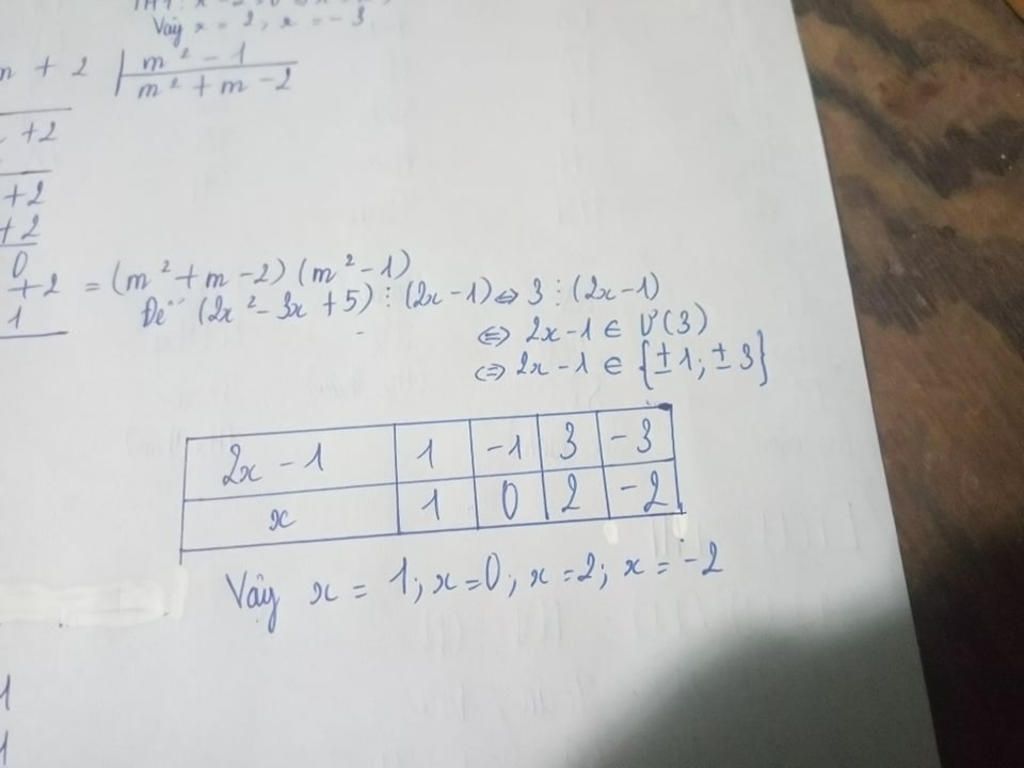 Vậy x = 2, x = -3
+ 2 | m² - 1
m² + m - 2
+2
+2
+2
0
+2 = (m² + m - 2) (m² - 1)
1 Để (2x² - 3x + 5) ⋮ (2x - 1) ⇔ 3 ⋮ (2x - 1)
⇔ 2x - 1 ∈ Ư(3)
⇔ 2x - 1 ∈ {± 1; ± 3}
2x - 1 1 -1 3 -3
x 1 0 2 -2
Vậy x = 1; x = 0; x = 2; x = -2
1
1